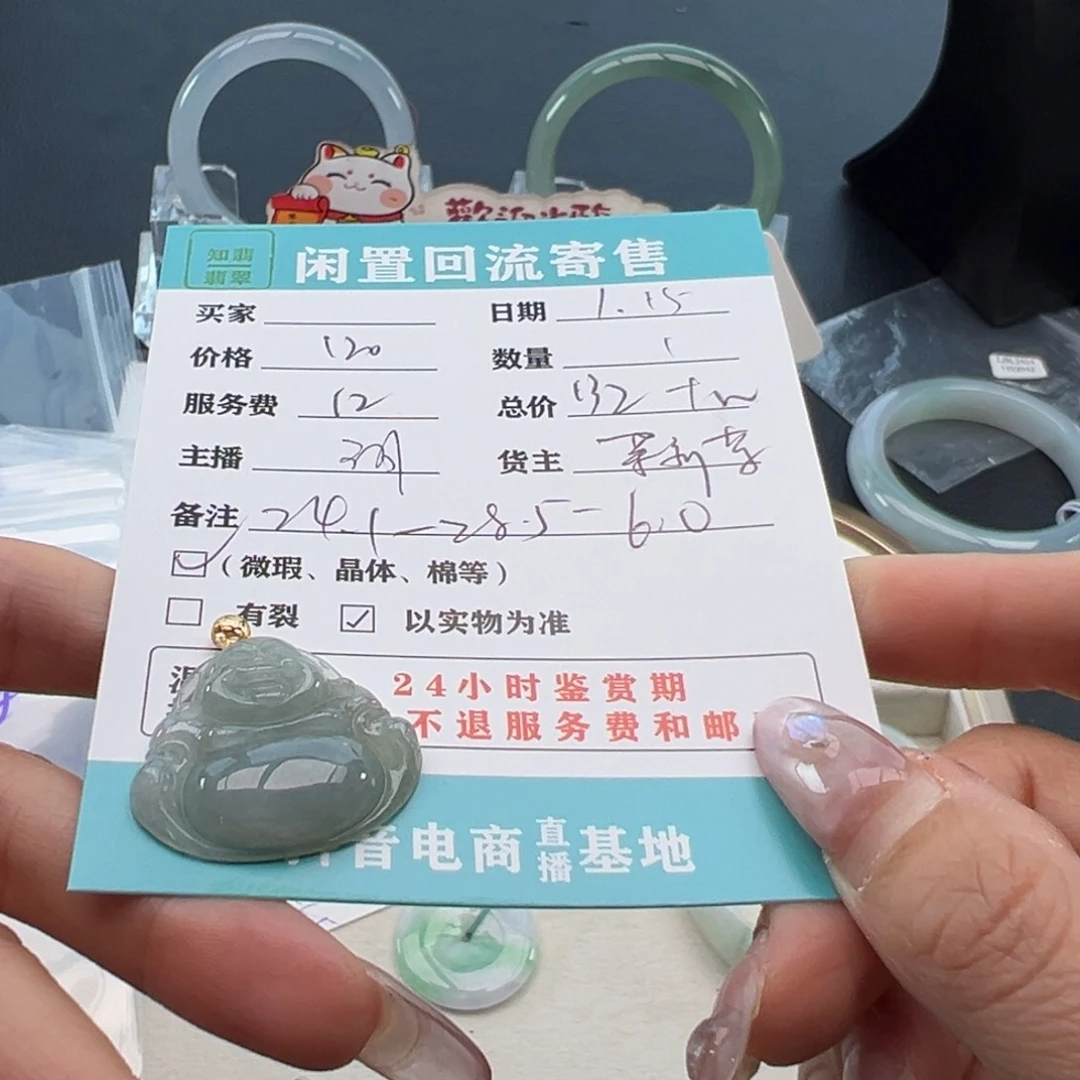 知翡
翡翠
闲置回流寄售
买家
日期 1.15
价格 120
数量 1
服务费 12
总价 132
主播
货主
备注 24.1-28.5-6.0
(微瑕、晶体、棉等)
有裂 以实物为准
24小时鉴赏期
不退服务费和邮
音电商直播基地